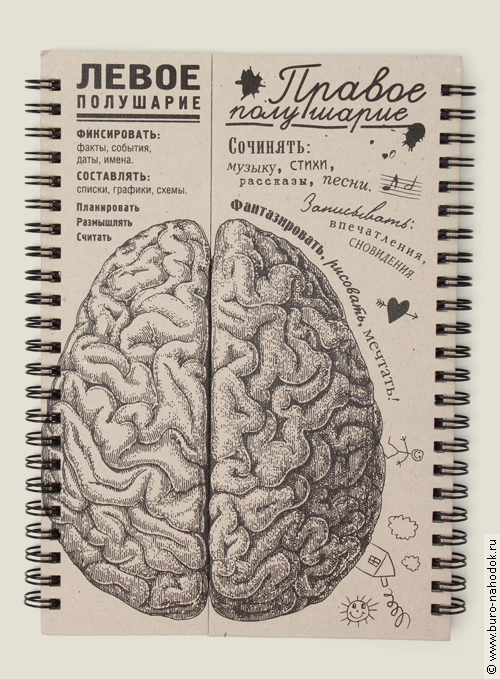 ЛЕВОЕ
ПОЛУШАРИЕ
ФИКСИРОВАТЬ:
факты, события,
даты, имена.
СОСТАВЛЯТЬ:
списки, графики, схемы.
Планировать
Размышлять
Считать
Правое
полушарие
Сочинять:
музыку, стихи,
рассказы, песни.
Записывать:
впечатления,
сновидения.
Фантазировать, рисовать, мечтать!
© www.buro-nahodok.ru